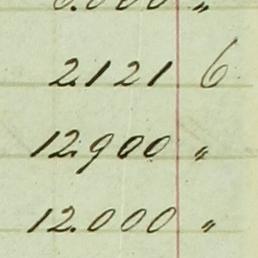 2121 6
12.900 "
12.000 "